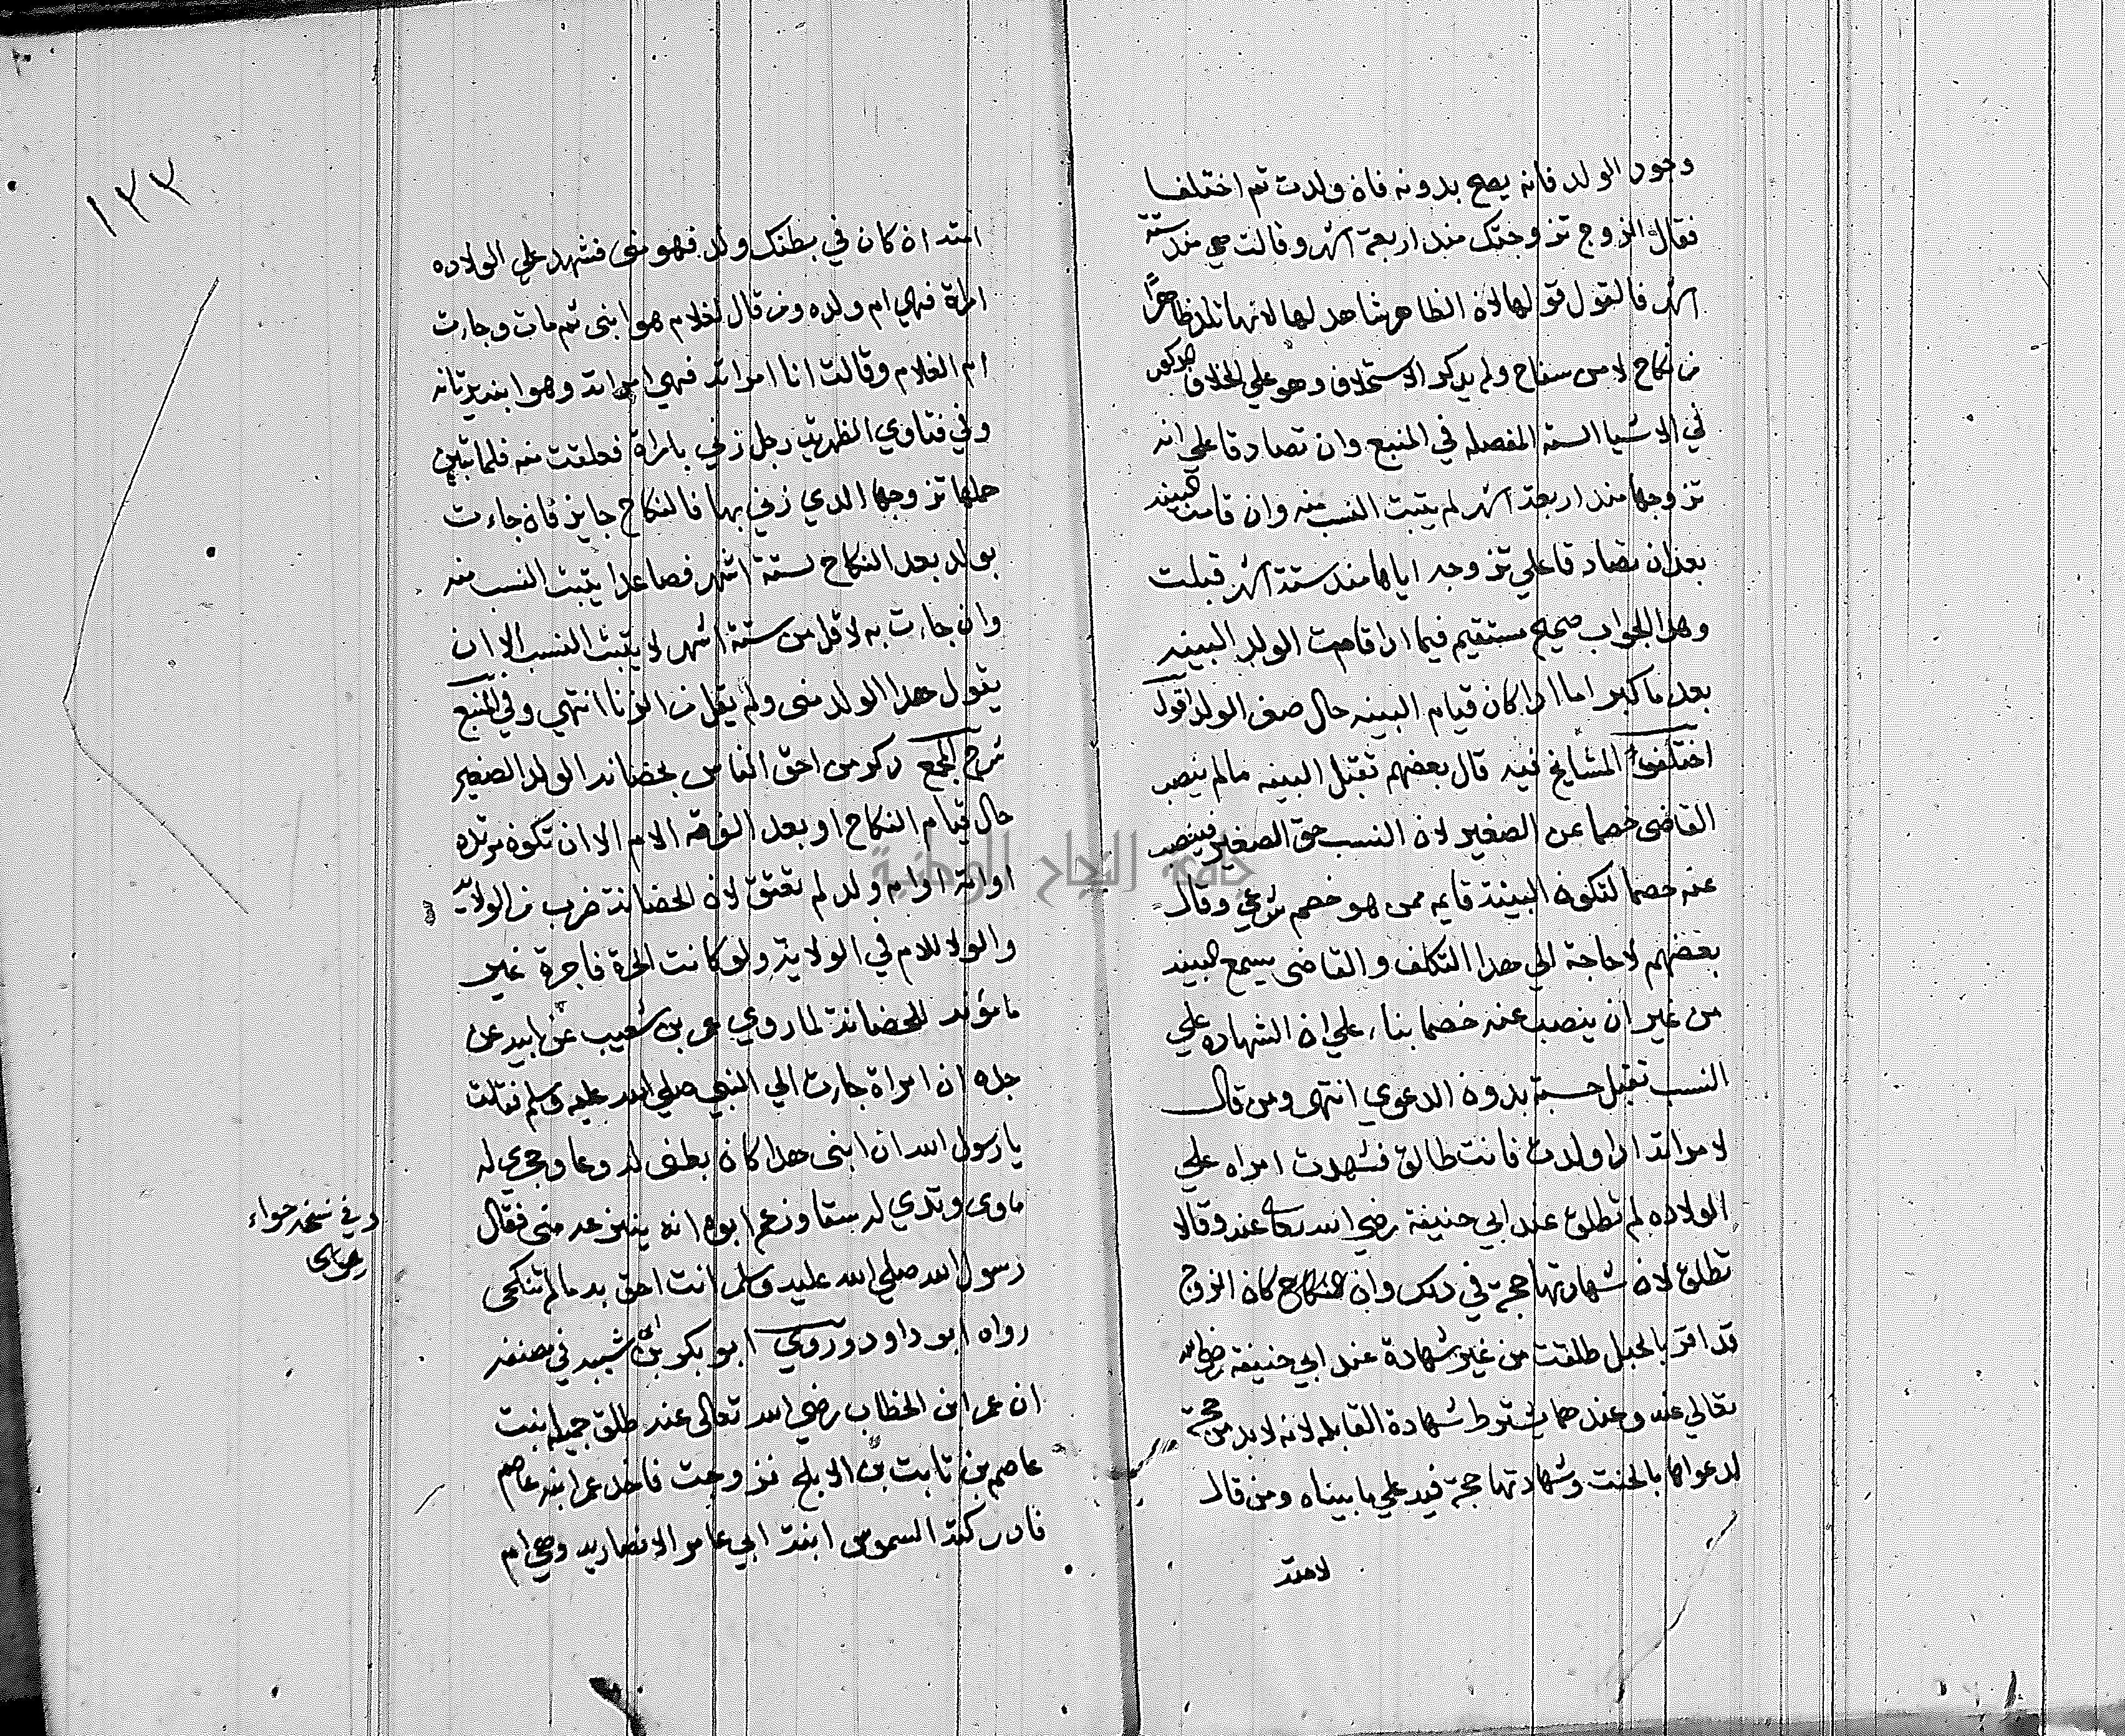 وجود الولد فانه يصح بدونه فان ولدت ثم اختلفا
فقال الزوج تزوجتك منذ اربعة اشهر وقالت هي منذ ستة
اشهر فالقول قولها لان الظاهر شاهد لها لانها تلد ظاهرا
من نكاح لا من سفاح ولم يذكر الاستحلاف وهو علي الخلاف المذكور
في الاشيا الستة المفصله في المنبع وان تصادقا علي انه
تزوجها منذ اربعة اشهر لم يثبت النسب منه وان قامت البينه
بعد ان تصادقا علي تزوجه اياها منذ ستة اشهر قبلت
وهذا الجواب صحيح مستقيم فيما اذا قامت الولد البينه
بعد ما كبر اما اذا كان قيام البينه حال صغر الولد قوله
اختلف المشايخ فيه قال بعضهم تقبل البينه مالم ينصب
القاضي خصما عن الصغير لان النسب حق الصغير فينصب
عنه خصما لتكون البينة قايمه ممن هو خصم شرعي وقال
بعضهم لا حاجة الي هذا التكلف والقاضي يسمع البينه
من غير ان ينصب عنه خصما بناء علي ان الشهاده علي
النسب تقبل حسبة بدون الدعوي انتهى ومن قال
لامراته اذا ولدت فانت طالق فشهدت امراه علي
الولاده لم تطلق عند ابي حنيفة رضي الله تعالى عنه وقالا
تطلق لان شهادتها حجة في ذلك وان النكاح كان الزوج
قد اقر بالحبل طلقت من غير شهادة عند ابي حنيفة رضي الله
تعالي عنه وعندهما يشترط شهادة القابله لانه لا بد من حجة
لدعواها بالحنث وشهادتها حجة فيه علي ما بيناه ومن قال
لامته
١٢٢
امته ان كان في بطنك ولد فهو مني فشهد علي الولاده
امراة فهي ام ولده ومن قال لغلام هو ابني ثم مات وجاءت
ام الغلام وقالت انا امراته فهي امراته وهو ابنه يرثانه
وفي فتاوي الظهرية رجل زني بامراة فحلقت منه فلما تبين
حملها تزوجها الذي زني بها فالنكاح جايز فان جاءت
بولد بعد النكاح لستة اشهر فصاعدا يثبت النسب منه
وان جاءت به لاقل من ستة اشهر لا يثبت النسب الا ان
يقول هذا الولد مني ولم يقل من الزنا انتهي وفي المنبع
شرح المجمع ذكر من احق الناس بحضانه الولد الصغير
حال قيام النكاح او بعد الفرقة الام الا ان تكون مرتده
او امة او ام ولد لم تعتق لان الحضانة ضرب من الولاية
والولا للام في الولاية ولو كانت الحرة فاجرة غير
مامونه للحضانة لما روي عمر بن شعيب عن ابيه عن
جده ان امراة جاءت الي النبي صلي الله عليه وسلم فقالت
يا رسول الله ان ابني هذا كان بطني له وعا وحجري له
ماوى وثدي له سقا وزعم ابوه انه ينزعه مني فقال
رسول الله صلي الله عليه وسلم انت احق به ما لم تنكحي
رواه ابو داود وروي ابو بكر بن ابي شيبه في مصنفه
ان عمر ابن الخطاب رضي الله تعالى عنه طلق جميله بنت
عاصم بن ثابت بن الابلح تزوجت فاخذ عمر ابنه عاصم
فادركته السموس ابنة ابي عامر الانصاريه وهي ام
وفي نسخه حواء
جامعة النجاح الوطنية